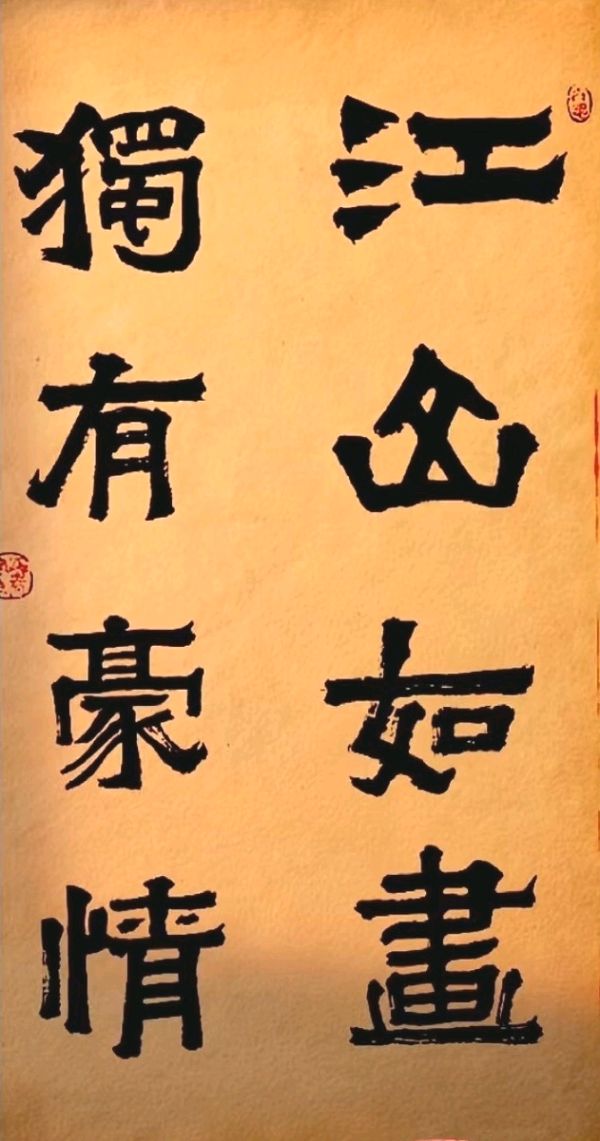 江山如畫
獨有豪情